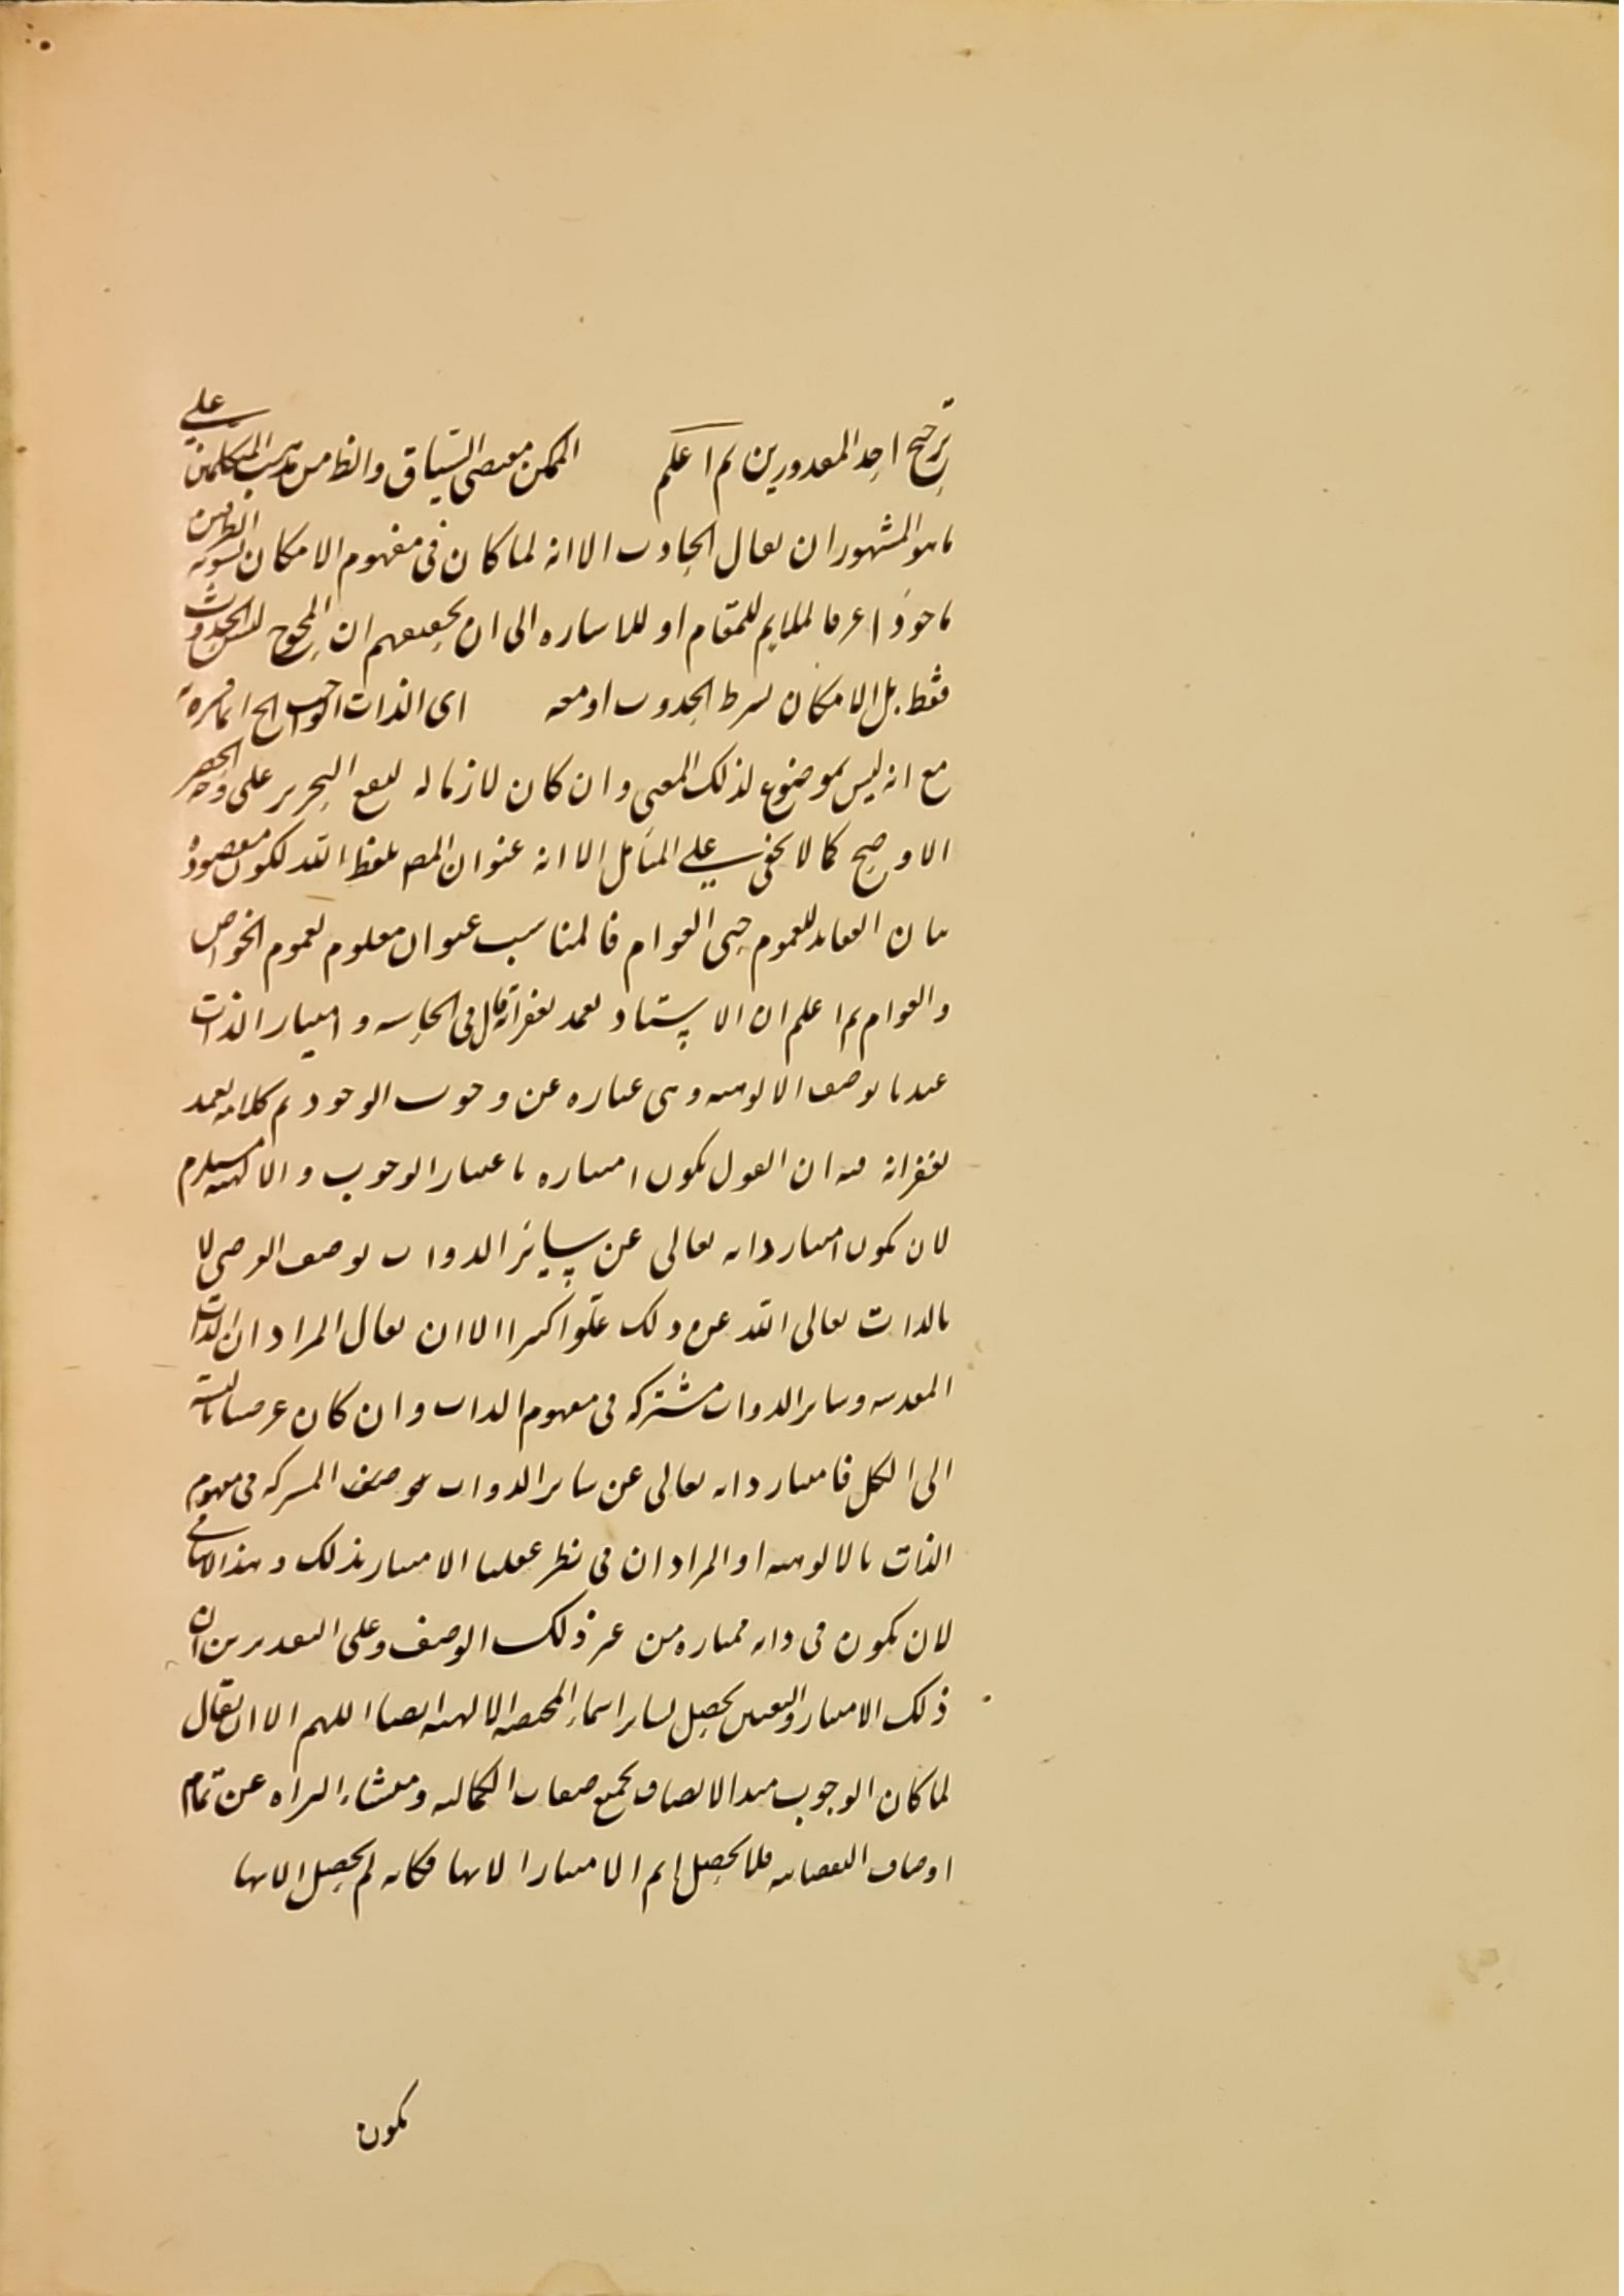 ترجيح احد المقدورين ثم اعلم الممكن مقتضى السياق والظ من مذهب المتكلمين على
ما هو المشهور ان يقال الحادث الا انه لما كان فى مفهوم الامكان تسويه الطرفين
ماخوذا عرفا لملايم للمقام او للاشاره الى ان تحقيقهم ان المحوج ليس الحدوث
فقط بل الامكان بشرط الحدوث او معه اى الذات الواجب الخ انما فسره به
مع انه ليس بموضوع لذلك المعنى وان كان لازما له ليقع التحرير على وجه الحصر
الاوضح كما لا يخفى على المتأمل الا انه عنوان المص بلفظ الله لكون مقصوده
بيان العقايد للعموم حتى العوام فالمناسب عنوان معلوم لعموم الخواص
والعوام ثم اعلم ان الاستاد تغمد بغفرانه قال فى الحاشيه وامتياز الذات
عندنا بوصف الالوهيه وهى عباره عن وجوب الوجود تم كلامه تغمد
بغفرانه فيه ان القول بكون امتيازه باعتبار الوجوب والالهيه مستلزم
لان يكون امتياز ذاته تعالى عن سائر الذوات بوصف العرضى لا
بالذات تعالى الله عن ذلك علوا كبيرا الا ان يقال المراد ان الذات
المقدسه وساير الذوات مشتركه فى مفهوم الذات وان كان عرضيا بالنسبة
الى الكل فامتياز ذاته تعالى عن ساير الذوات بوصف المشتركه فى مفهوم
الذات بالالوهيه او المراد ان فى نظر عقلنا الامتياز بذلك وهذا لا ينافى
لان يكون فى ذاته ممتازه من غير ذلك الوصف وعلى التقديرين ان
ذلك الامتياز والتعين يحصل لساير اسماء المختصه الالهيه ايضا اللهم الا ان يقال
لما كان الوجوب مبدا الاتصاف بجميع صفات الكماليه ومنشاء البراه عن تمام
اوصاف النقصانيه فلا يحصل اتم الامتياز الا بها فكانه لم يحصل الا بها
يكون